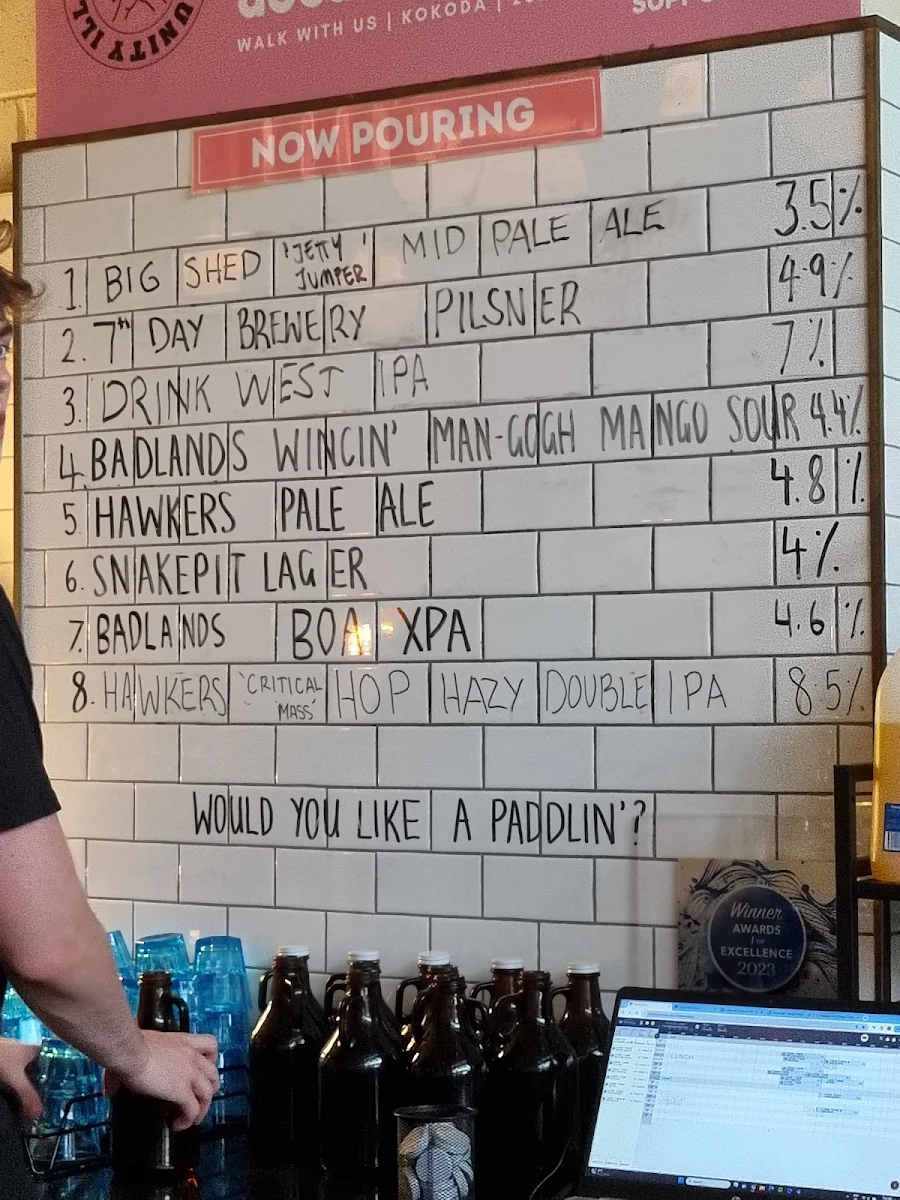 UNITY ILL
WALK WITH US | KOKODA |
NOW POURING
1. BIG SHED 'JETTY JUMPER' MID PALE ALE 3.5%
2. 7th DAY BREWERY PILSNER 4.9%
3. DRINK WEST IPA 7%
4. BADLANDS WINCIN' MAN-GOGH MANGO SOUR 4.4%
5 HAWKERS PALE ALE 4.8%
6. SNAKEPIT LAGER 4%
7. BADLANDS BOA XPA 4.6%
8. HAWKERS 'CRITICAL MASS' HOP HAZY DOUBLE IPA 8.5%
WOULD YOU LIKE A PADDLIN'?
Winner
AWARDS
for
EXCELLENCE
2023